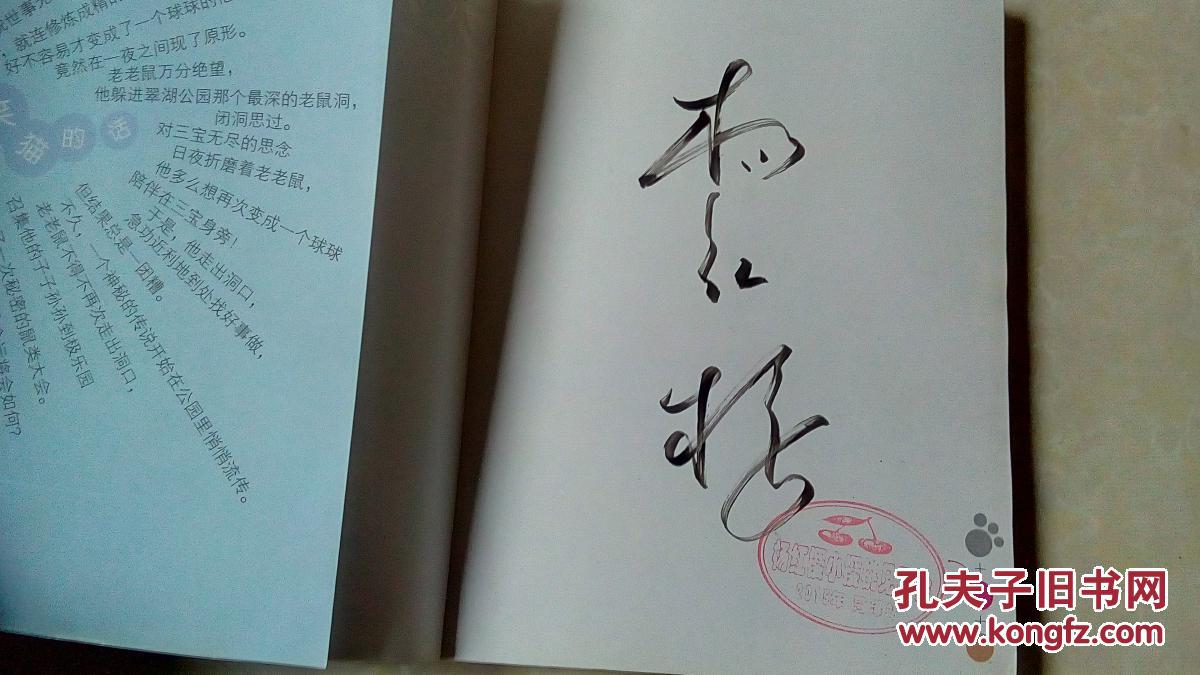 就连修炼成精的
好不容易才变成了一个球球的他
竟然在一夜之间现了原形。
老老鼠万分绝望，
他躲进翠湖公园那个最深的老鼠洞，
闭洞思过。
对三宝无尽的思念
日夜折磨着老老鼠，
他多么想再次变成一个球球
陪伴在三宝身旁！
于是，他走出洞口，
急功近利地到处找好事做，
但结果总是一团糟。
不久，一个神秘的传说开始在公园里悄悄流传。
老老鼠不得不再次走出洞口，
召集他的子子孙孙到极乐园
了一次秘密的鼠类大会。
会如何？
笑猫的话
杨红樱
杨红樱小
孔夫子旧书网
www.kongfz.com